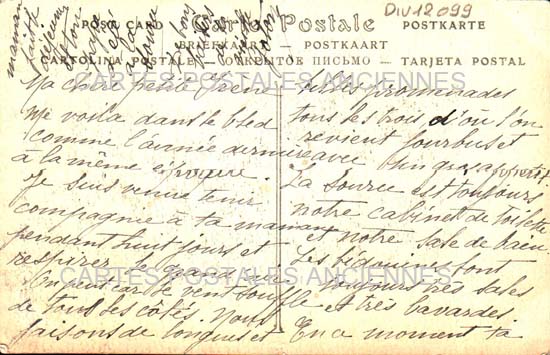 DIV12099
POST CARD Carte Postale POSTKARTE
BRIEFKAART - POSTKAART
CARTOLINA POSTALE ОТКРЫТОЕ ПИСЬМО - TARJETA POSTAL
CARTES POSTALES ANCIENNES
Ma chère petite
me voilà dans le bled
comme l'année dernière
à la même époque.
Je suis venue tenir
compagnie à ta maman
pendant huit jours et
respirer le grand
car le vent souffle
de tous les côtés. Nous
faisons de longues et
belles promenades
tous les trois d'où l'on
revient fourbus et
avec un gros appétit
La Source est toujours
notre cabinet de toilette
et notre salle de bain.
Les bédouines sont
toujours très sales
et très bavardes.
En ce moment ta
maman
fait le
déjeuner
et ton
papa
CARTES POSTALES ANCIENNES